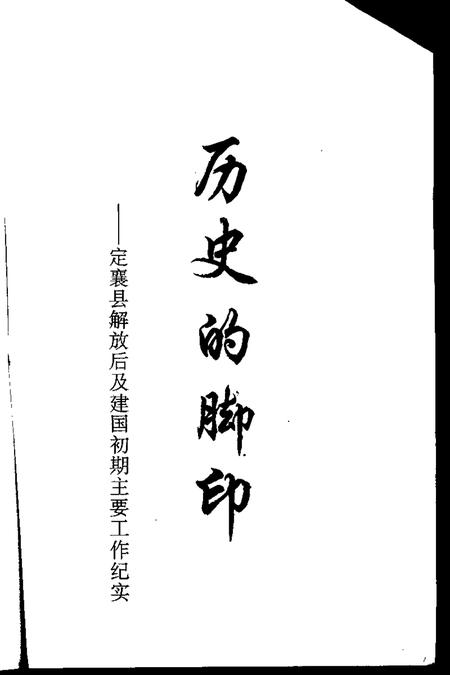 历史的脚印
——定襄县解放后及建国初期主要工作纪实